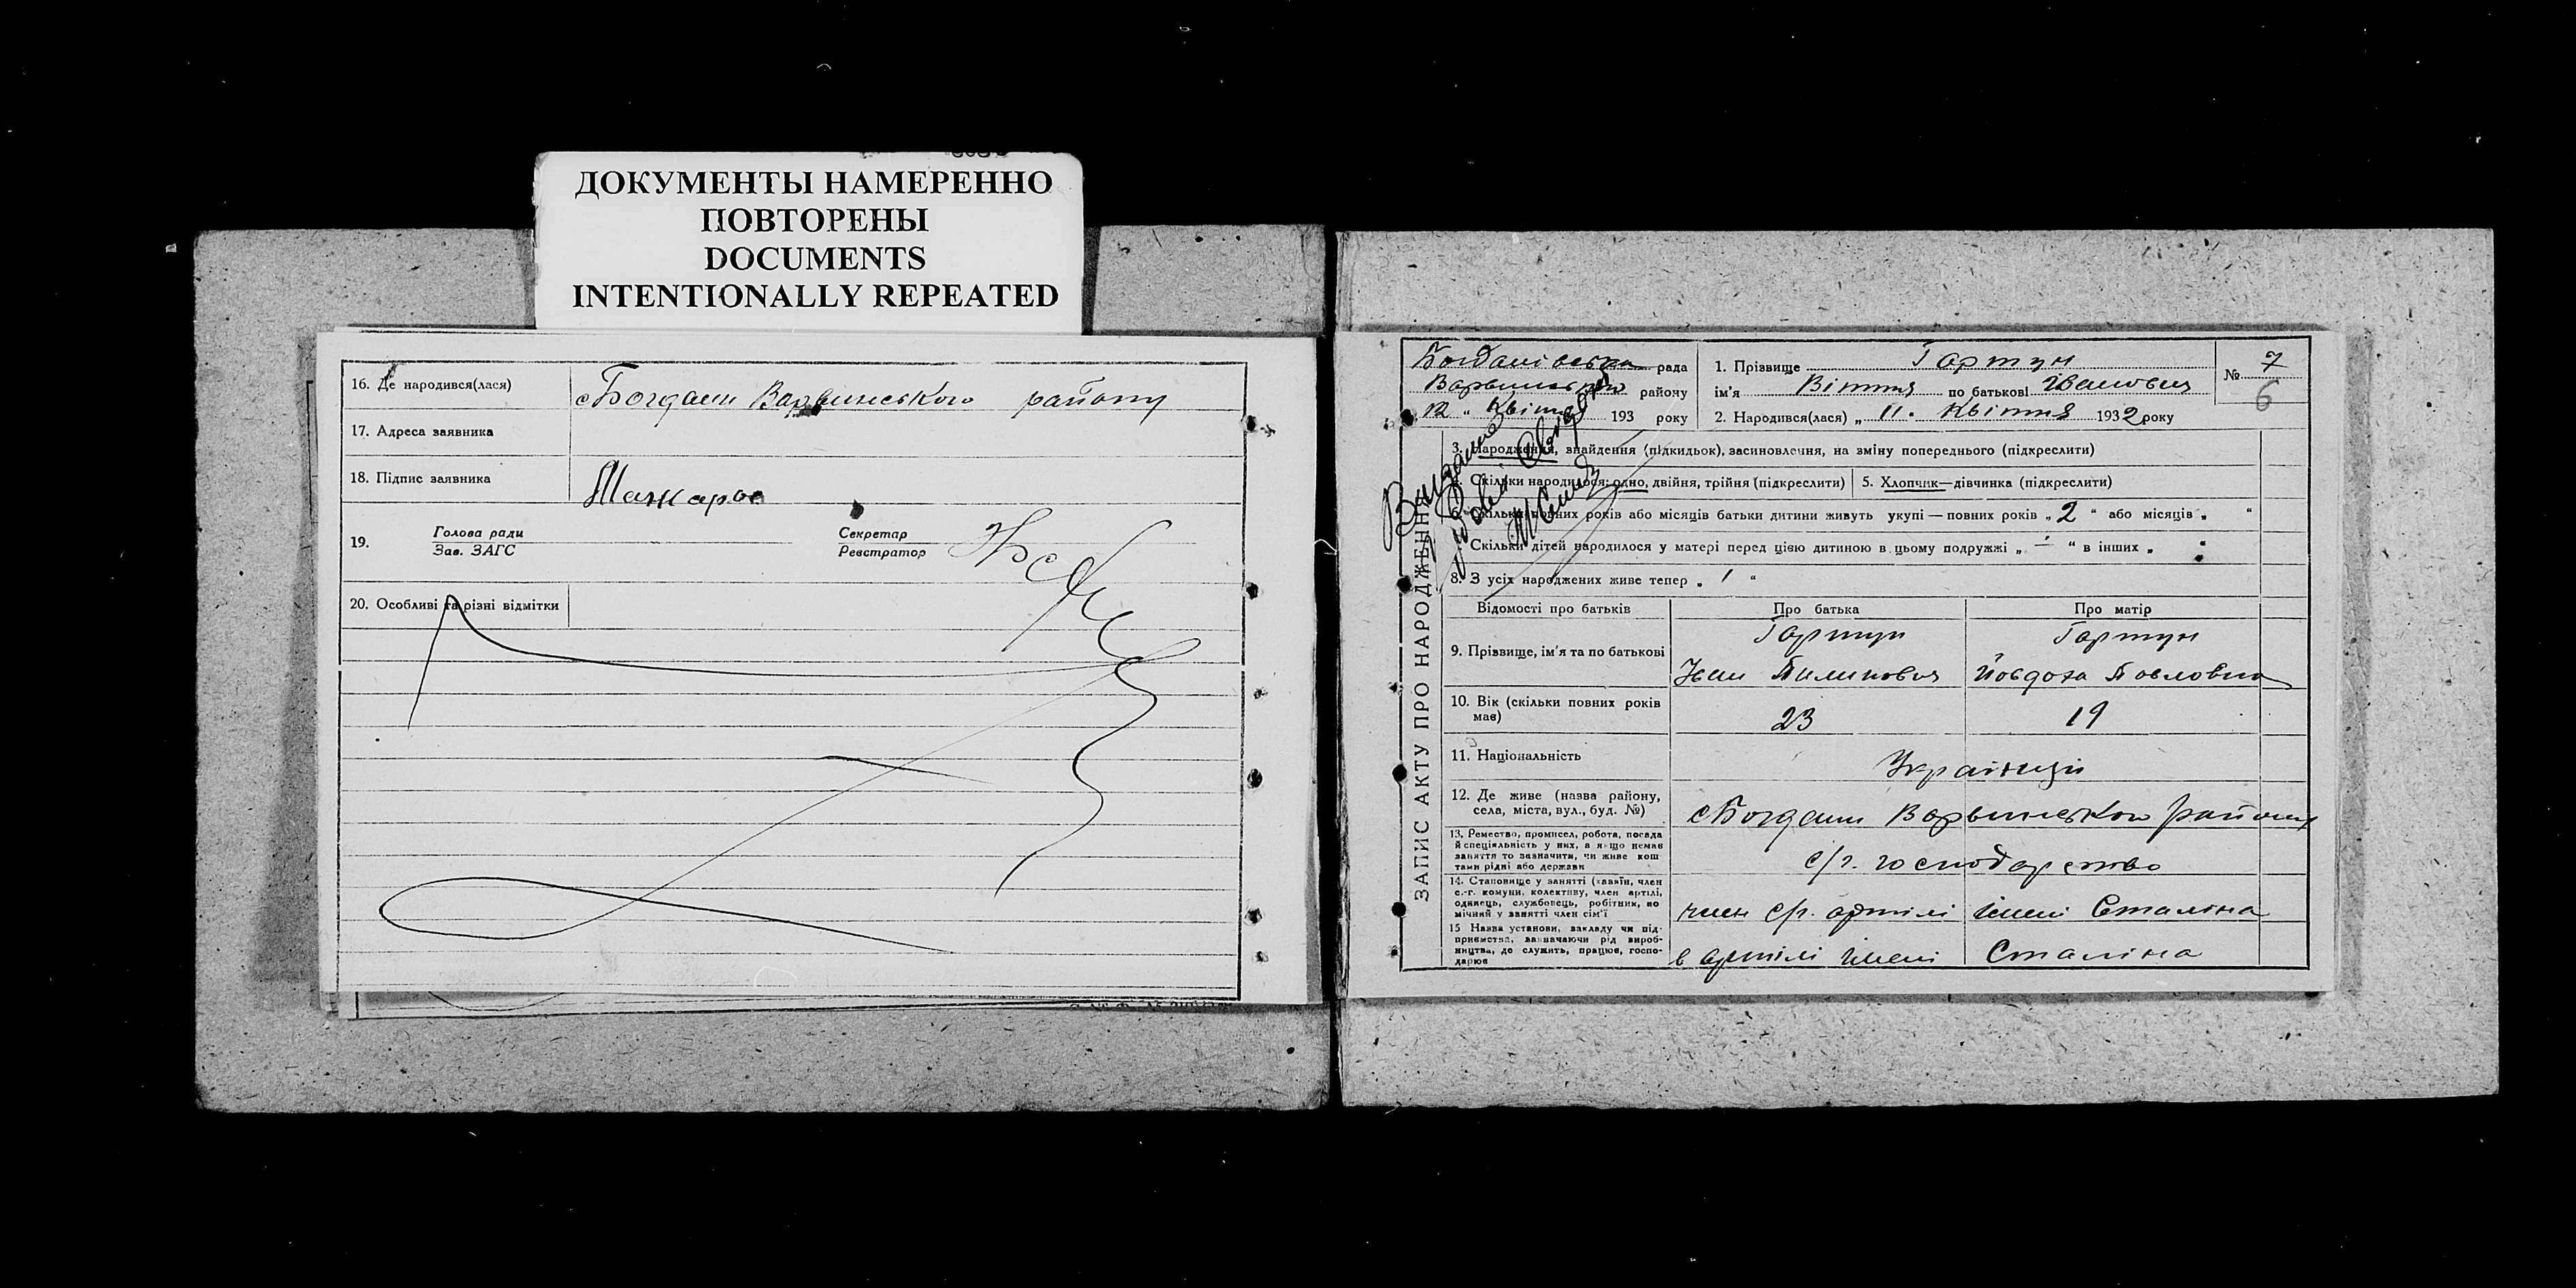 ДОКУМЕНТЫ НАМЕРЕННО
ПОВТОРЕНЫ
DOCUMENTS
INTENTIONALLY REPEATED
16. Де народився(лася) с Богдани Варвинського району
17. Адреса заявника
18. Підпис заявника
19. Голова ради
Зав. ЗАГС
Секретар
Реєстратор
20. Особливі та різні відмітки
ЗАПИС АКТУ ПРО НАРОДЖЕННЯ
Богданівська рада
Варвинського району
12 " Квітня 193 року
1. Прізвище Гартун
ім'я Віття по батькові Іванович
2. Народився(лася) „ 11. Квітня 1932 року
№ 7
6
3. Народження, знайдення (підкидьок), засиновлення, на зміну попереднього (підкреслити)
4. Скільки народилося: одно, двійня, трійня (підкреслити)
5. Хлопчик—дівчинка (підкреслити)
Скільки повних років або місяців батьки дитини живуть укупі — повних років „ 2 “ або місяців „ “
Скільки дітей народилося у матері перед цією дитиною в цьому подружжі „ — “ в інших „
8. З усіх народжених живе тепер „ 1 “
Відомості про батьків Про батька Про матір
9. Прізвище, ім'я та по батькові
Гартун
Іван Пилипович
Гартун
Йовдоха Павловна
10. Вік (скільки повних років має) 23 19
11. Національність Українці
12. Де живе (назва району, села, міста, вул., буд. №) с Богдани Варвинського району
13. Ремество, промисел, робота, посада й спеціяльність у них, а якщо немає заняття то зазначити, чи живе коштами рідні або держави
с/г. господарство
14. Становище у занятті (хазяїн, член с.-г. комуни, колективу, член артілі, одинець, службовець, робітник, помічний у занятті член сім'ї
член с/г. артілі імені Сталіна
15 Назва установи, закладу чи підприємства, зазначаючи рід виробництва, де служить, працює, господарює
в артілі імені Сталіна